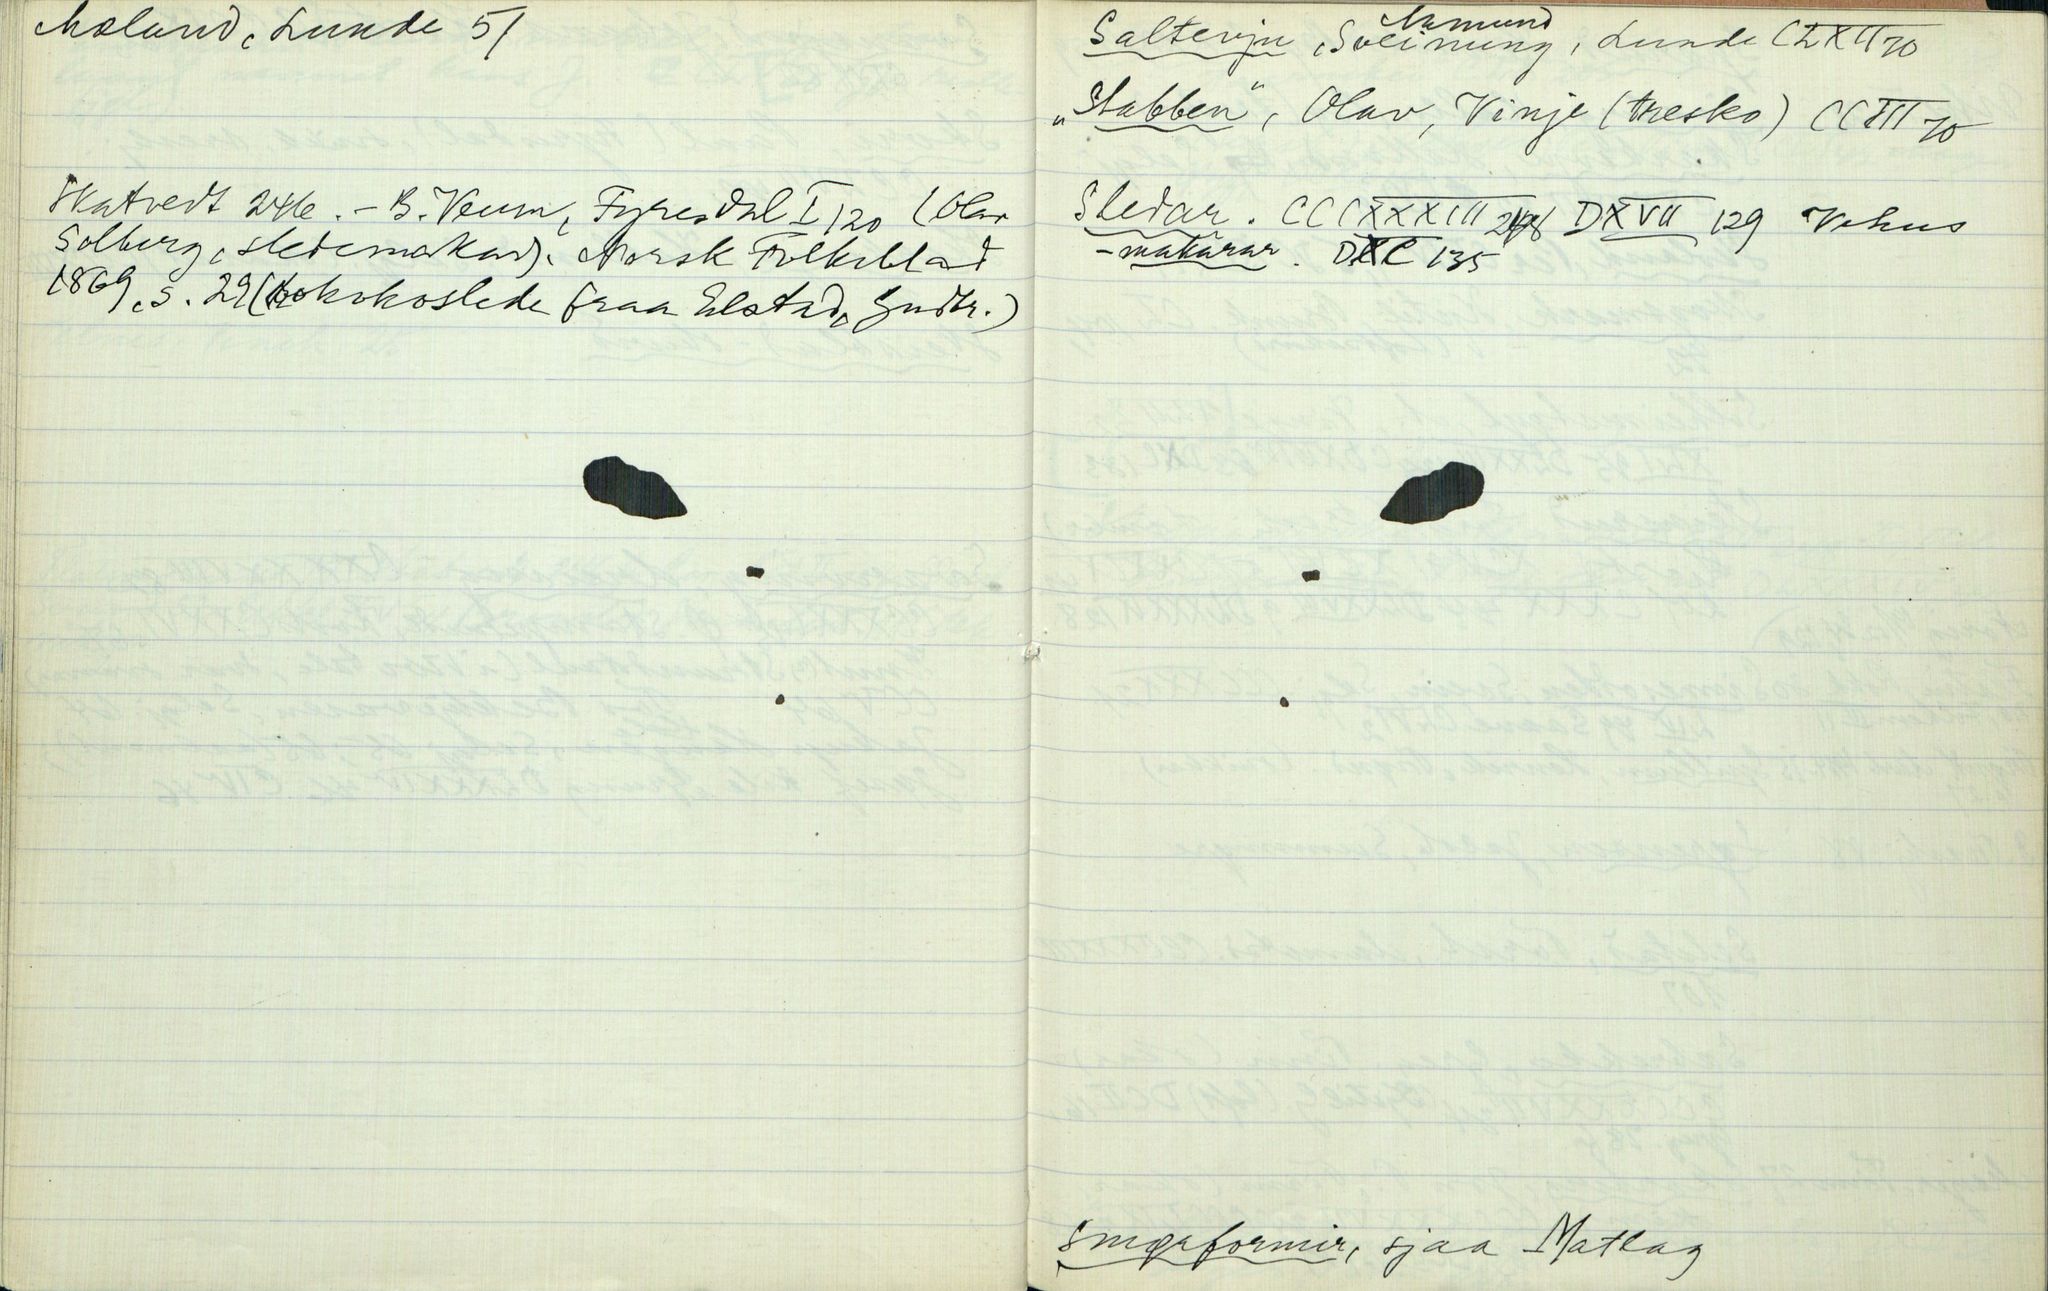 Moland, Lunde 51
Skatvedt 246. - B. Veum, Fyresdal I 120 (Olav
Solberg, sledemakar). Norsk Folkeblad
1869, s. 29 (Rokokoslede fraa Elstad, Gudbr.)
Aamund
Salterju, Sveinung, Lunde CLXII 70
"Stabben", Olav, Vinje (tresko) CCIII 70
Sledar. CCCXXXIII 248 DXVII 129 Vehus
-makarar. DXC 135
Smørformir, sjaa Matlag